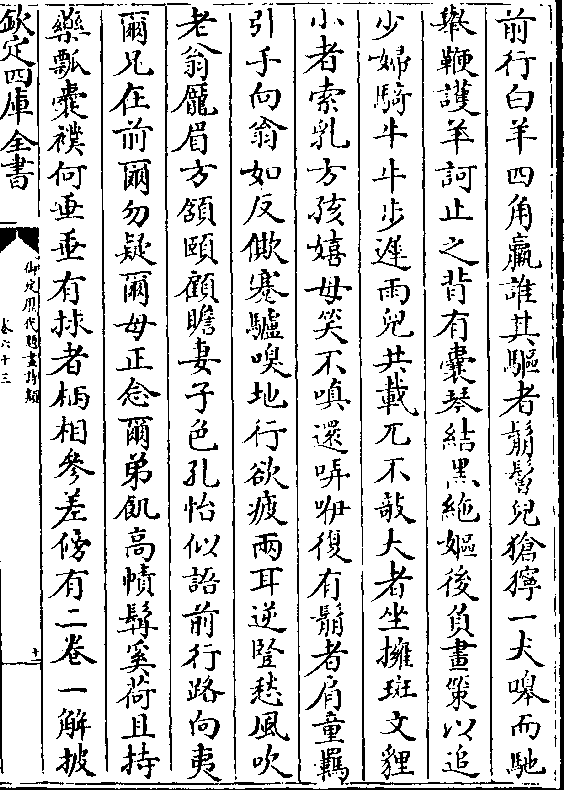 前行白羊四角羸誰其驅者鬅鬙兒獊獰一犬嘷而馳
舉鞭護羊訶止之背有囊琴結黒絁嫗後負畫策以追
少婦騎牛牛步遲兩兒共載兀不敧大者坐擁斑文貍
小者索乳方孩嬉母笑不嗔還哢咿復有鬅者肩童羈
引手向翁如反僛蹇驢嗅地行欲疲兩耳逆豎愁風吹
老翁龐眉方頷頤顧瞻妻子色孔怡似語前行路向夷
爾兄在前爾勿疑爾母正念爾弟飢高幘髯奚荷且持
藥瓢囊襆何垂垂有捄者柄相參差傍有二卷一解披
欽定四庫全書
御定歴代題畫詩類
卷六十三
十